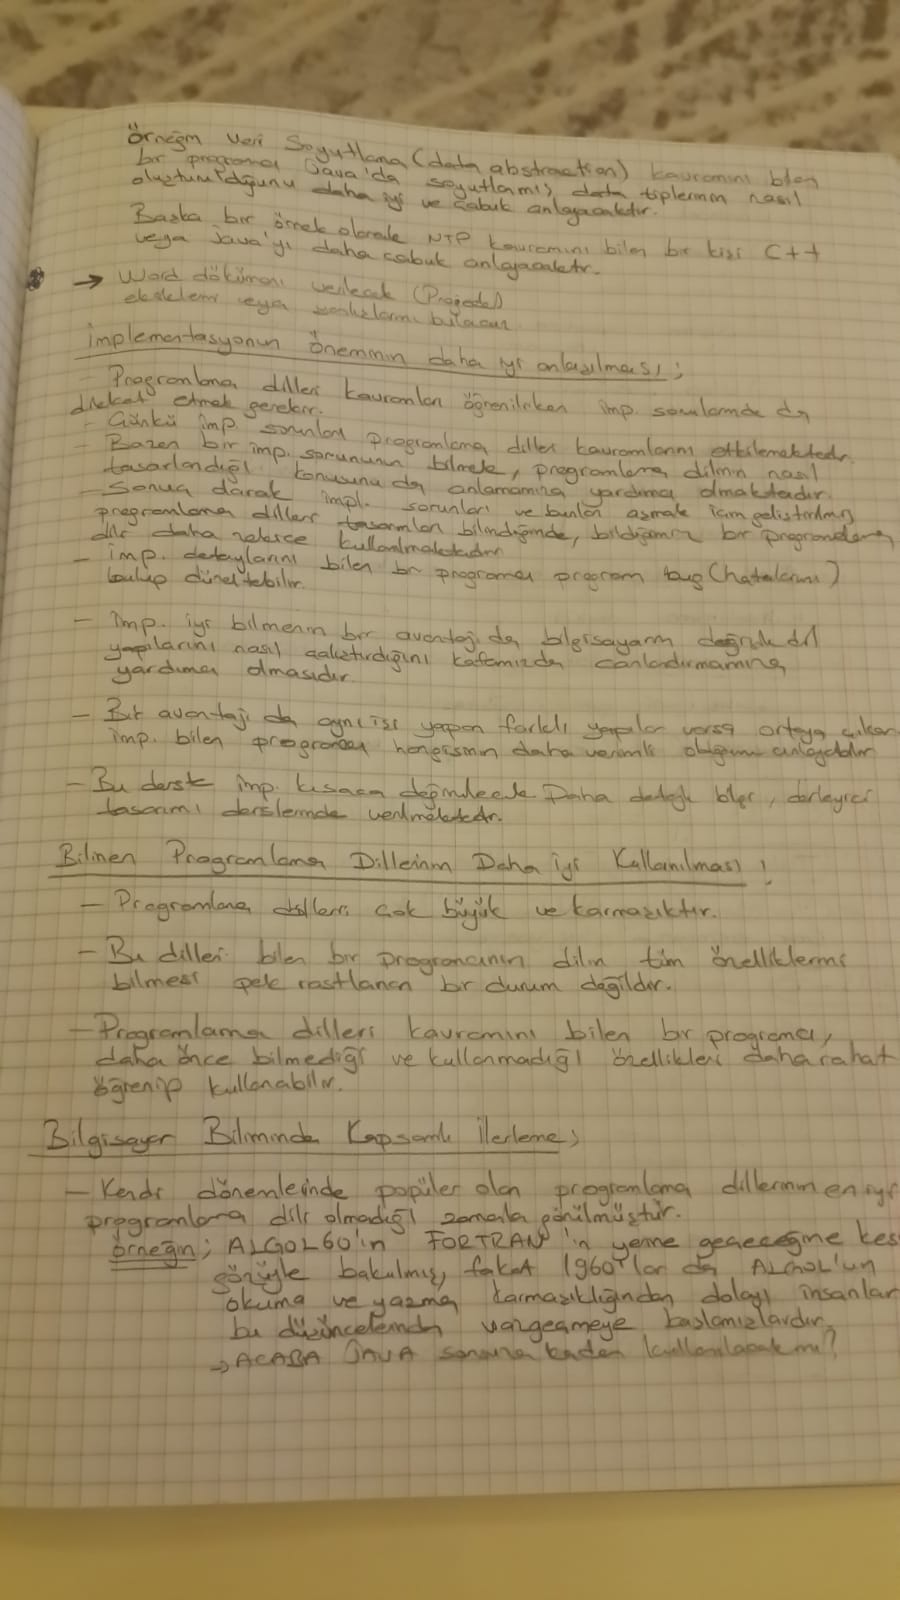 Örneğin veri Soyutlama (data abstraction) kavramını bilen
bir programcı Java'da soyutlamış data tiplerinin nasıl
oluşturulduğunu daha iyi ve çabuk anlayacaktır.
Başka bir örnek olarak NTP kavramını bilen bir kişi C++
veya Java'yı daha çabuk anlayacaktır.
→ Word dökümanı verilecek (Projede)
eksiklerini veya yanlışlarını bulacağız
İmplementasyonun öneminin daha iyi anlaşılması;
- Programlama dilleri kavramları öğrenilirken imp. sorunlarında da
dikkat etmek gerekir.
- Çünkü imp. sorunları programlama dilleri kavramlarını etkilemektedir.
- Bazen bir imp. sorununun bilmek, programlama dilinin nasıl
tasarlandığı konusunu da anlamamıza yardımcı olmaktadır.
- Sonuç olarak impl. sorunları ve bunları aşmak için geliştirilmiş
programlama dilleri tasarımları bilindiğinde, bildiğimiz bir programlama
dili daha zekice kullanılmaktadır
- imp. detaylarını bilen bir programcı program bug (hatalarını)
bulup düzeltebilir.
- Imp. iyi bilmenin bir avantajı da bilgisayarın değişik dil
yapılarını nasıl çalıştırdığını kafamızda canlandırmamıza
yardımcı olmasıdır.
- Bir avantajı da aynı işi yapan farklı yapılar varsa ortaya çıkar
imp. bilen programcı hangisinin daha verimli olduğunu anlayabilir
- Bu derste imp. kısaca değinilecek Daha detaylı bilgi, derleyici
tasarımı derslerinde verilmektedir.
Bilinen Programlama Dillerinin Daha iyi Kullanılması!
- Programlama dilleri çok büyük ve karmaşıktır.
- Bu dilleri bilen bir programcının dilin tüm özelliklerini
bilmesi pek rastlanan bir durum değildir.
- Programlama dilleri kavramını bilen bir programcı,
daha önce bilmediği ve kullanmadığı özellikleri daha rahat
öğrenip kullanabilir.
Bilgisayar Biliminde Kapsamlı ilerleme;
- Kendi dönemlerinde popüler olan programlama dillerinin en iyi
programlama dili olmadığı zamanla görülmüştür.
örneğin; ALGOL60'ın FORTRAN'ın yerine geçeceğine kes
gözüyle bakılmış, fakat 1960'lar da ALGOL'un
okuma ve yazma karmaşıklığından dolayı insanlar
bu düşüncelerinden vazgeçmeye başlamışlardır.
→ ACABA JAVA sonuna kadar kullanılacak mı?